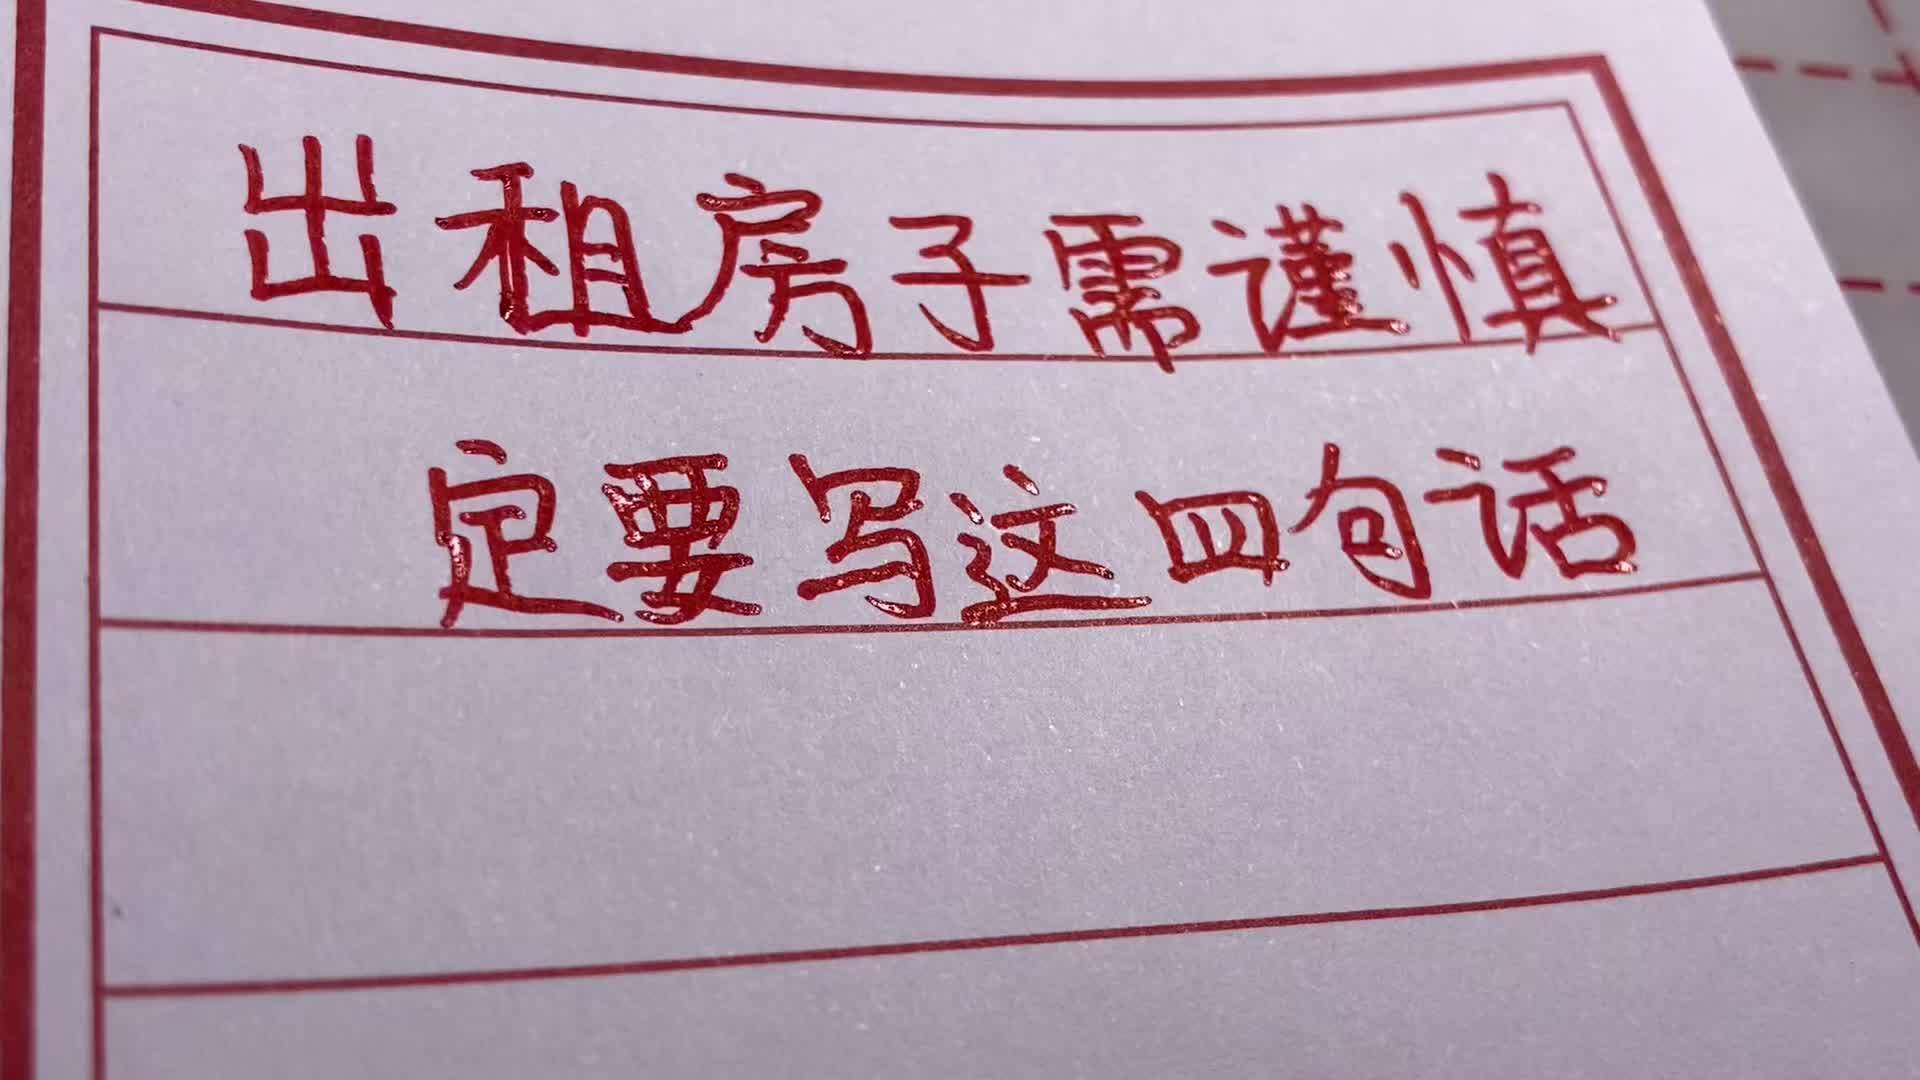 出租房子需谨慎
定要写这四句话